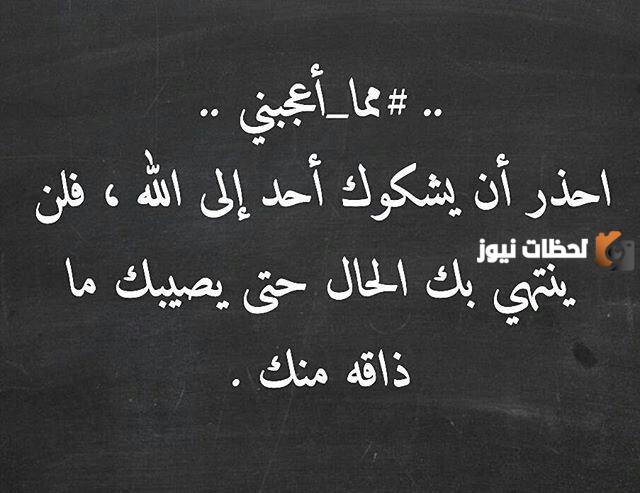 .. #مما_أعجبني ..
احذر أن يشكوك أحد إلى الله ، فلن
لحظات نيوز
ينتهي بك الحال حتى يصيبك ما
ذاقه منك .